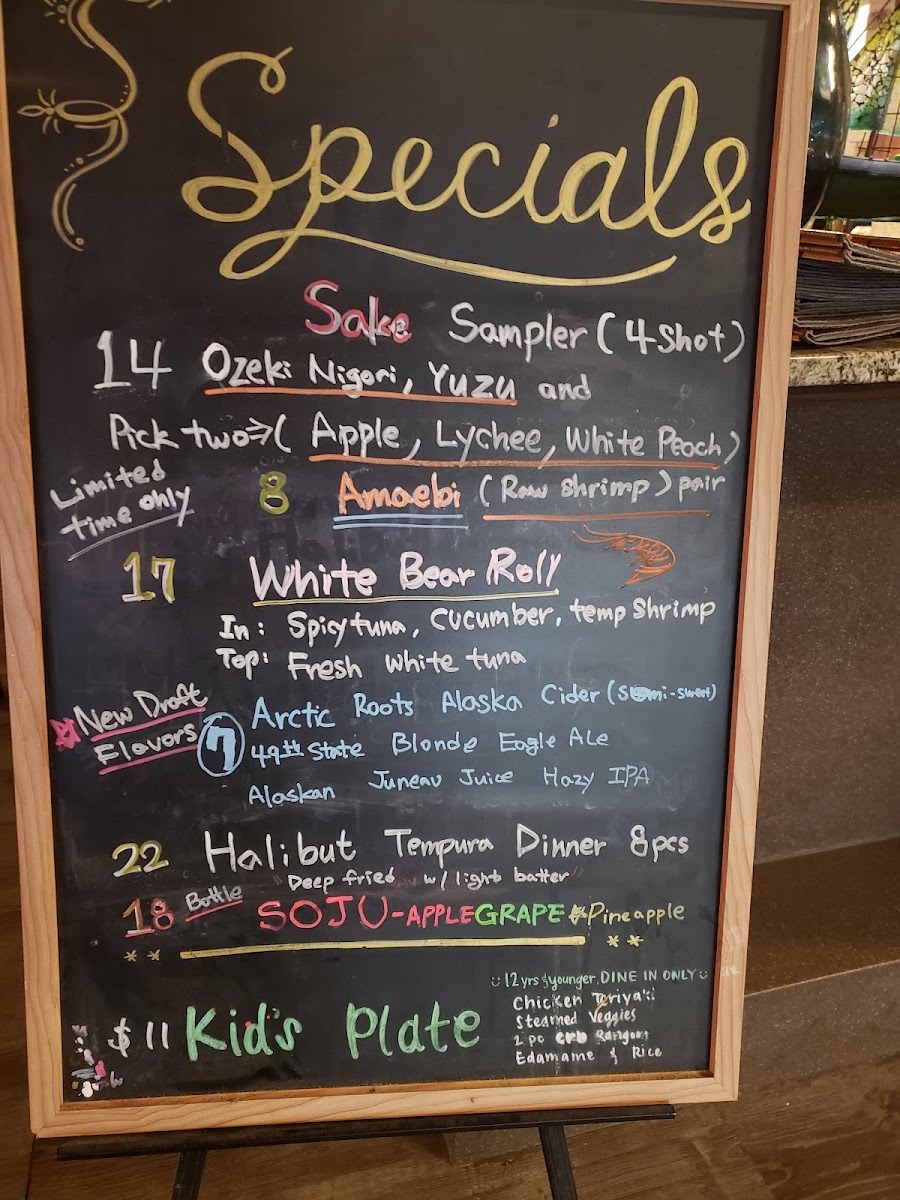 Specials
Sake Sampler (4 shot)
14 Ozeki Nigori, Yuzu and
Pick two⇒( Apple, Lychee, White Peach)
Limited
time only
8 Amaebi (Raw shrimp) pair
17 White Bear Roll
In: Spicy tuna, Cucumber, temp shrimp
Top: Fresh white tuna
New Draft
Flavors
7 Arctic Roots Alaska Cider (Semi-sweet)
49th State Blonde Eagle Ale
Alaskan Juneau Juice Hazy IPA
22 Halibut Tempura Dinner 8pcs
"Deep fried w/ light batter"
18 Bottle SOJU-APPLE GRAPE & Pineapple
** **
12 yrs & younger, DINE IN ONLY
$11 Kid's Plate
Chicken Teriyaki
Steamed Veggies
2 pc crb Rangoon
Edamame & Rice